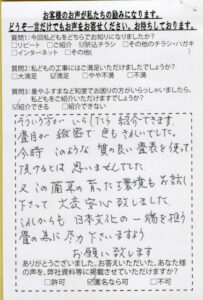 お客様のお声が私たちの励みになります。
どうぞ一言だけでもお声をお寄せください。お待ちしております。
質問1:今回私どもをどちらでお知りになりましたか?
□リピート □ご紹介 ☑折込チラシ □その他のチラシ・ハガキ
□インターネット □その他( )
質問2:私どもの工事にはご満足いただけましたでしょうか?
□大満足 ☑満足 □やや不満 □不満
質問3:畳やふすまなど和室でお困りの方がいらっしゃいましたら、
私どもをご紹介いただけますでしょうか?
☑紹介できる □紹介できない
そういう方がいらしたら紹介できます
畳目が緻密で色もきれいでした。
今時このような質の良い畳表を使って
頂けるとは思いませんでした
又この藺草の育った環境もお話し
下さって大変安心致しました。
これからも日本文化の一端を担う
畳の為に尽力下さいますよう
お願い致します
ありがとうございました。お答えいただいた、あなた様
の声を、弊社資料等に掲載させていただけますか?
□許可 ☑匿名なら可 □不可